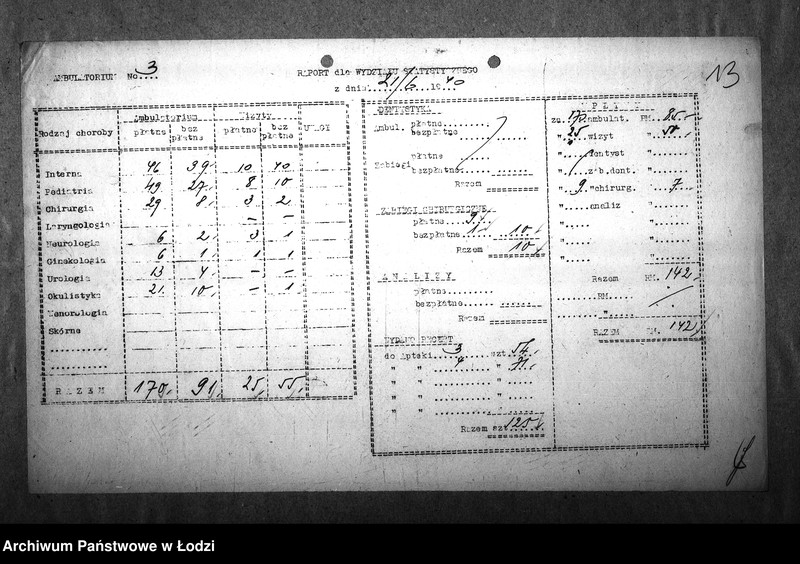 AMBULATORIUM No. 3
RAPORT dla WYDZIAŁU STATYSTYCZNEGO
z dnia 21/6 1940
13
Rodzaj choroby Ambulatorium Wizyty ULGI
płatne bez płatne płatne bez płatne
Interna 46 39 10 40
Pediatria 49 27 8 10
Chirurgia 29 8 3 2
Laryngologia - -
Neurologia 6 2 3 1
Ginekologia 6 1 1 1
Urologia 13 4 - -
Okulistyka 21 10 - 1
Wenorologia
Skórne
RAZEM 170 91 25 55
DENTYSTYKA
Ambul. płatne
bezpłatne
Zabiegi płatne
bezpłatne
Razem
ZABIEGI CHIRURGICZNE
płatne 9
bezpłatne 1 10
Razem 10
ANALIZY
płatne
bezpłatne
Razem
WYDANO RECEPT
do Apteki 3 szt. 54
" " 4 " 71
" " "
" " "
" " "
Razem szt. 125
za 170 ambulat. RM. 85.-
" 25 wizyt " 50
" dentyst "
" zab.dont. "
" 9 chirurg. " 7
" analiz "
" "
" "
" "
Razem RM. 142
RM.
"
RAZEM RM. 142
Archiwum Państwowe w Łodzi